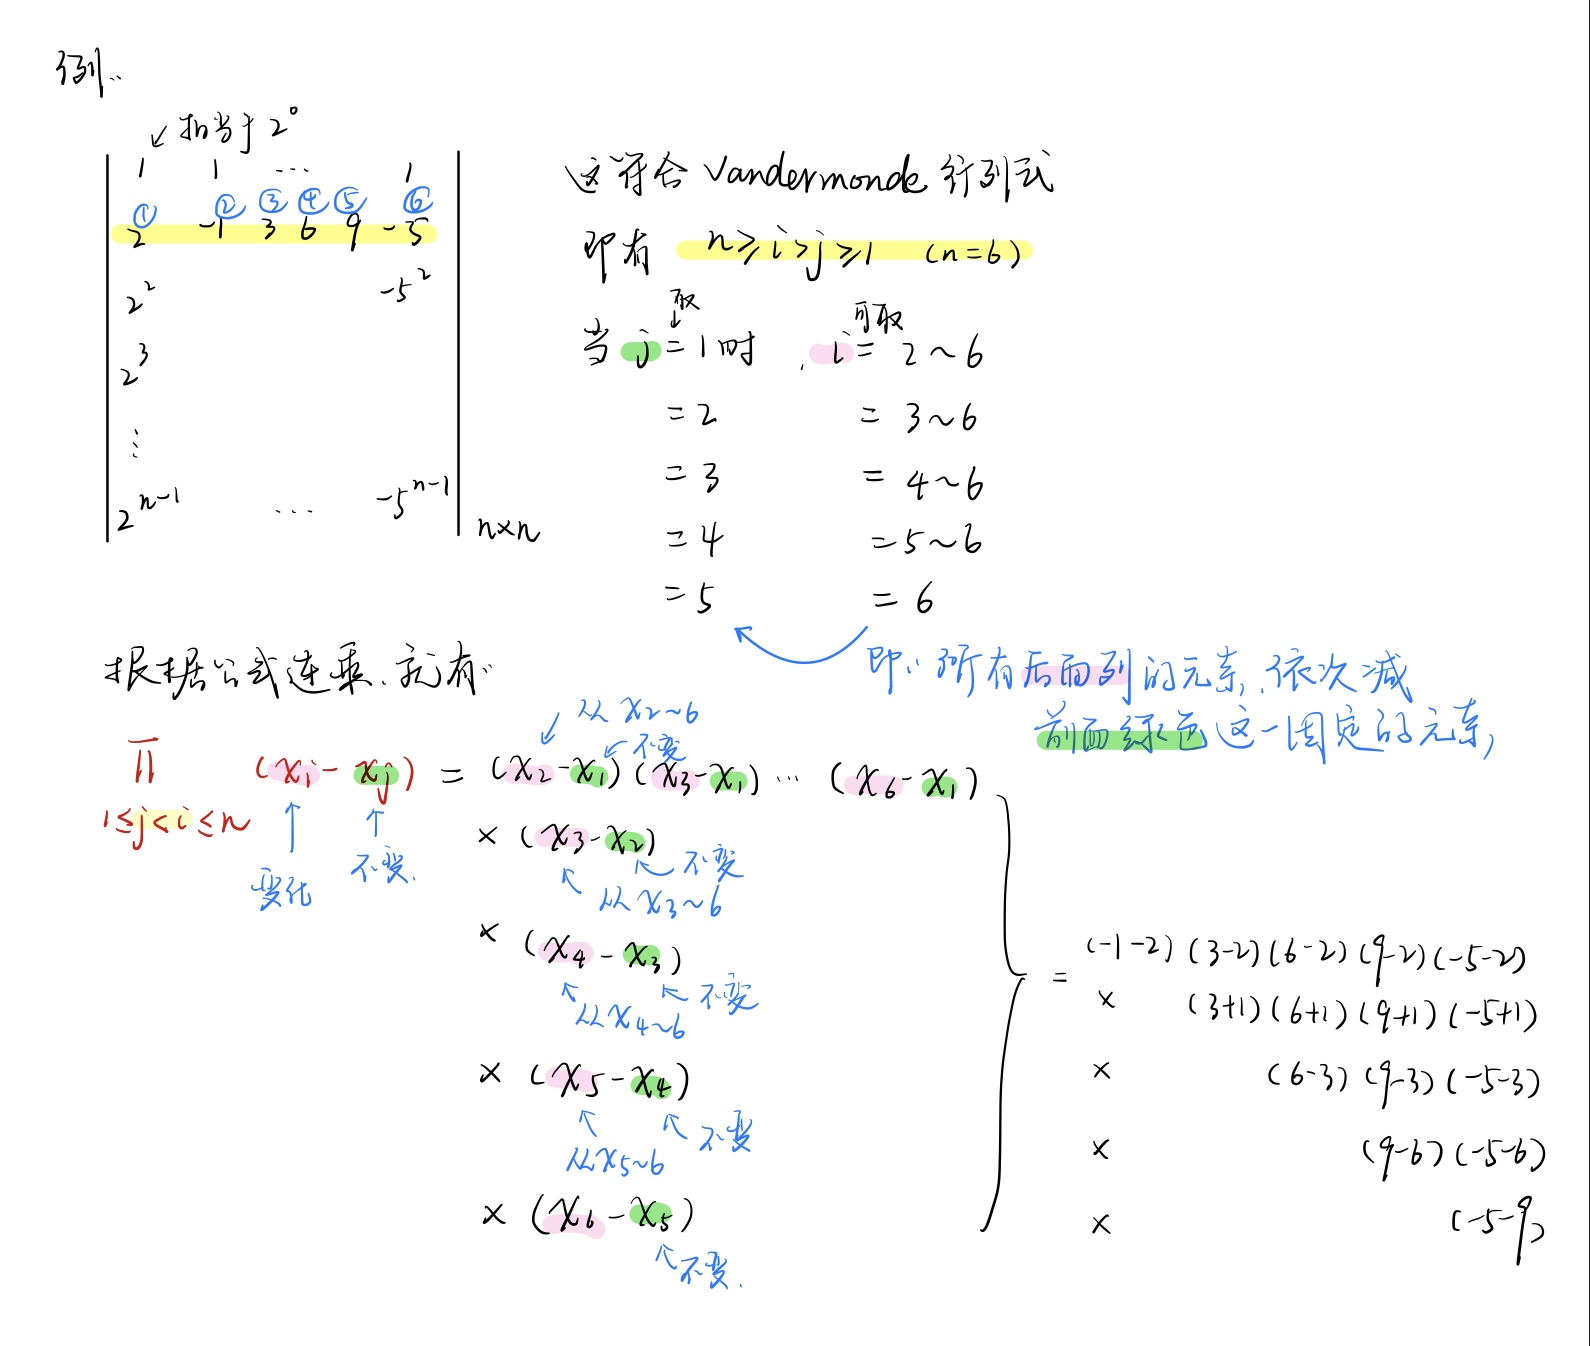 例:
↙ 相当于 2°
1 1 ... 1
① ② ③ ④ ⑤ ⑥
2 -1 3 6 9 -5
2² -5²
2³
⋮
2ⁿ⁻¹ ... -5ⁿ⁻¹
n×n
这符合 Vandermonde 行列式
即有 n≥i>j≥1 (n=6)
取 可取
当 j=1时, i= 2~6
=2 = 3~6
=3 = 4~6
=4 =5~6
=5 = 6
即: 所有后面列的元素, 依次减
前面绿色这一固定的元素,
根据公式连乘, 就有:
从 x₂~6
不变
∏ (xᵢ-xⱼ) = (x₂-x₁)(x₃-x₁)...(x₆-x₁)
1≤j<i≤n
变化
不变.
×(x₃-x₂)
不变
从 x₃~6
×(x₄-x₃)
不变
从x₄~6
×(x₅-x₄)
不变
从x₅~6
×(x₆-x₅)
不变.
= (-1-2)(3-2)(6-2)(9-2)(-5-2)
× (3+1)(6+1)(9+1)(-5+1)
× (6-3)(9-3)(-5-3)
× (9-6)(-5-6)
× (-5-9)